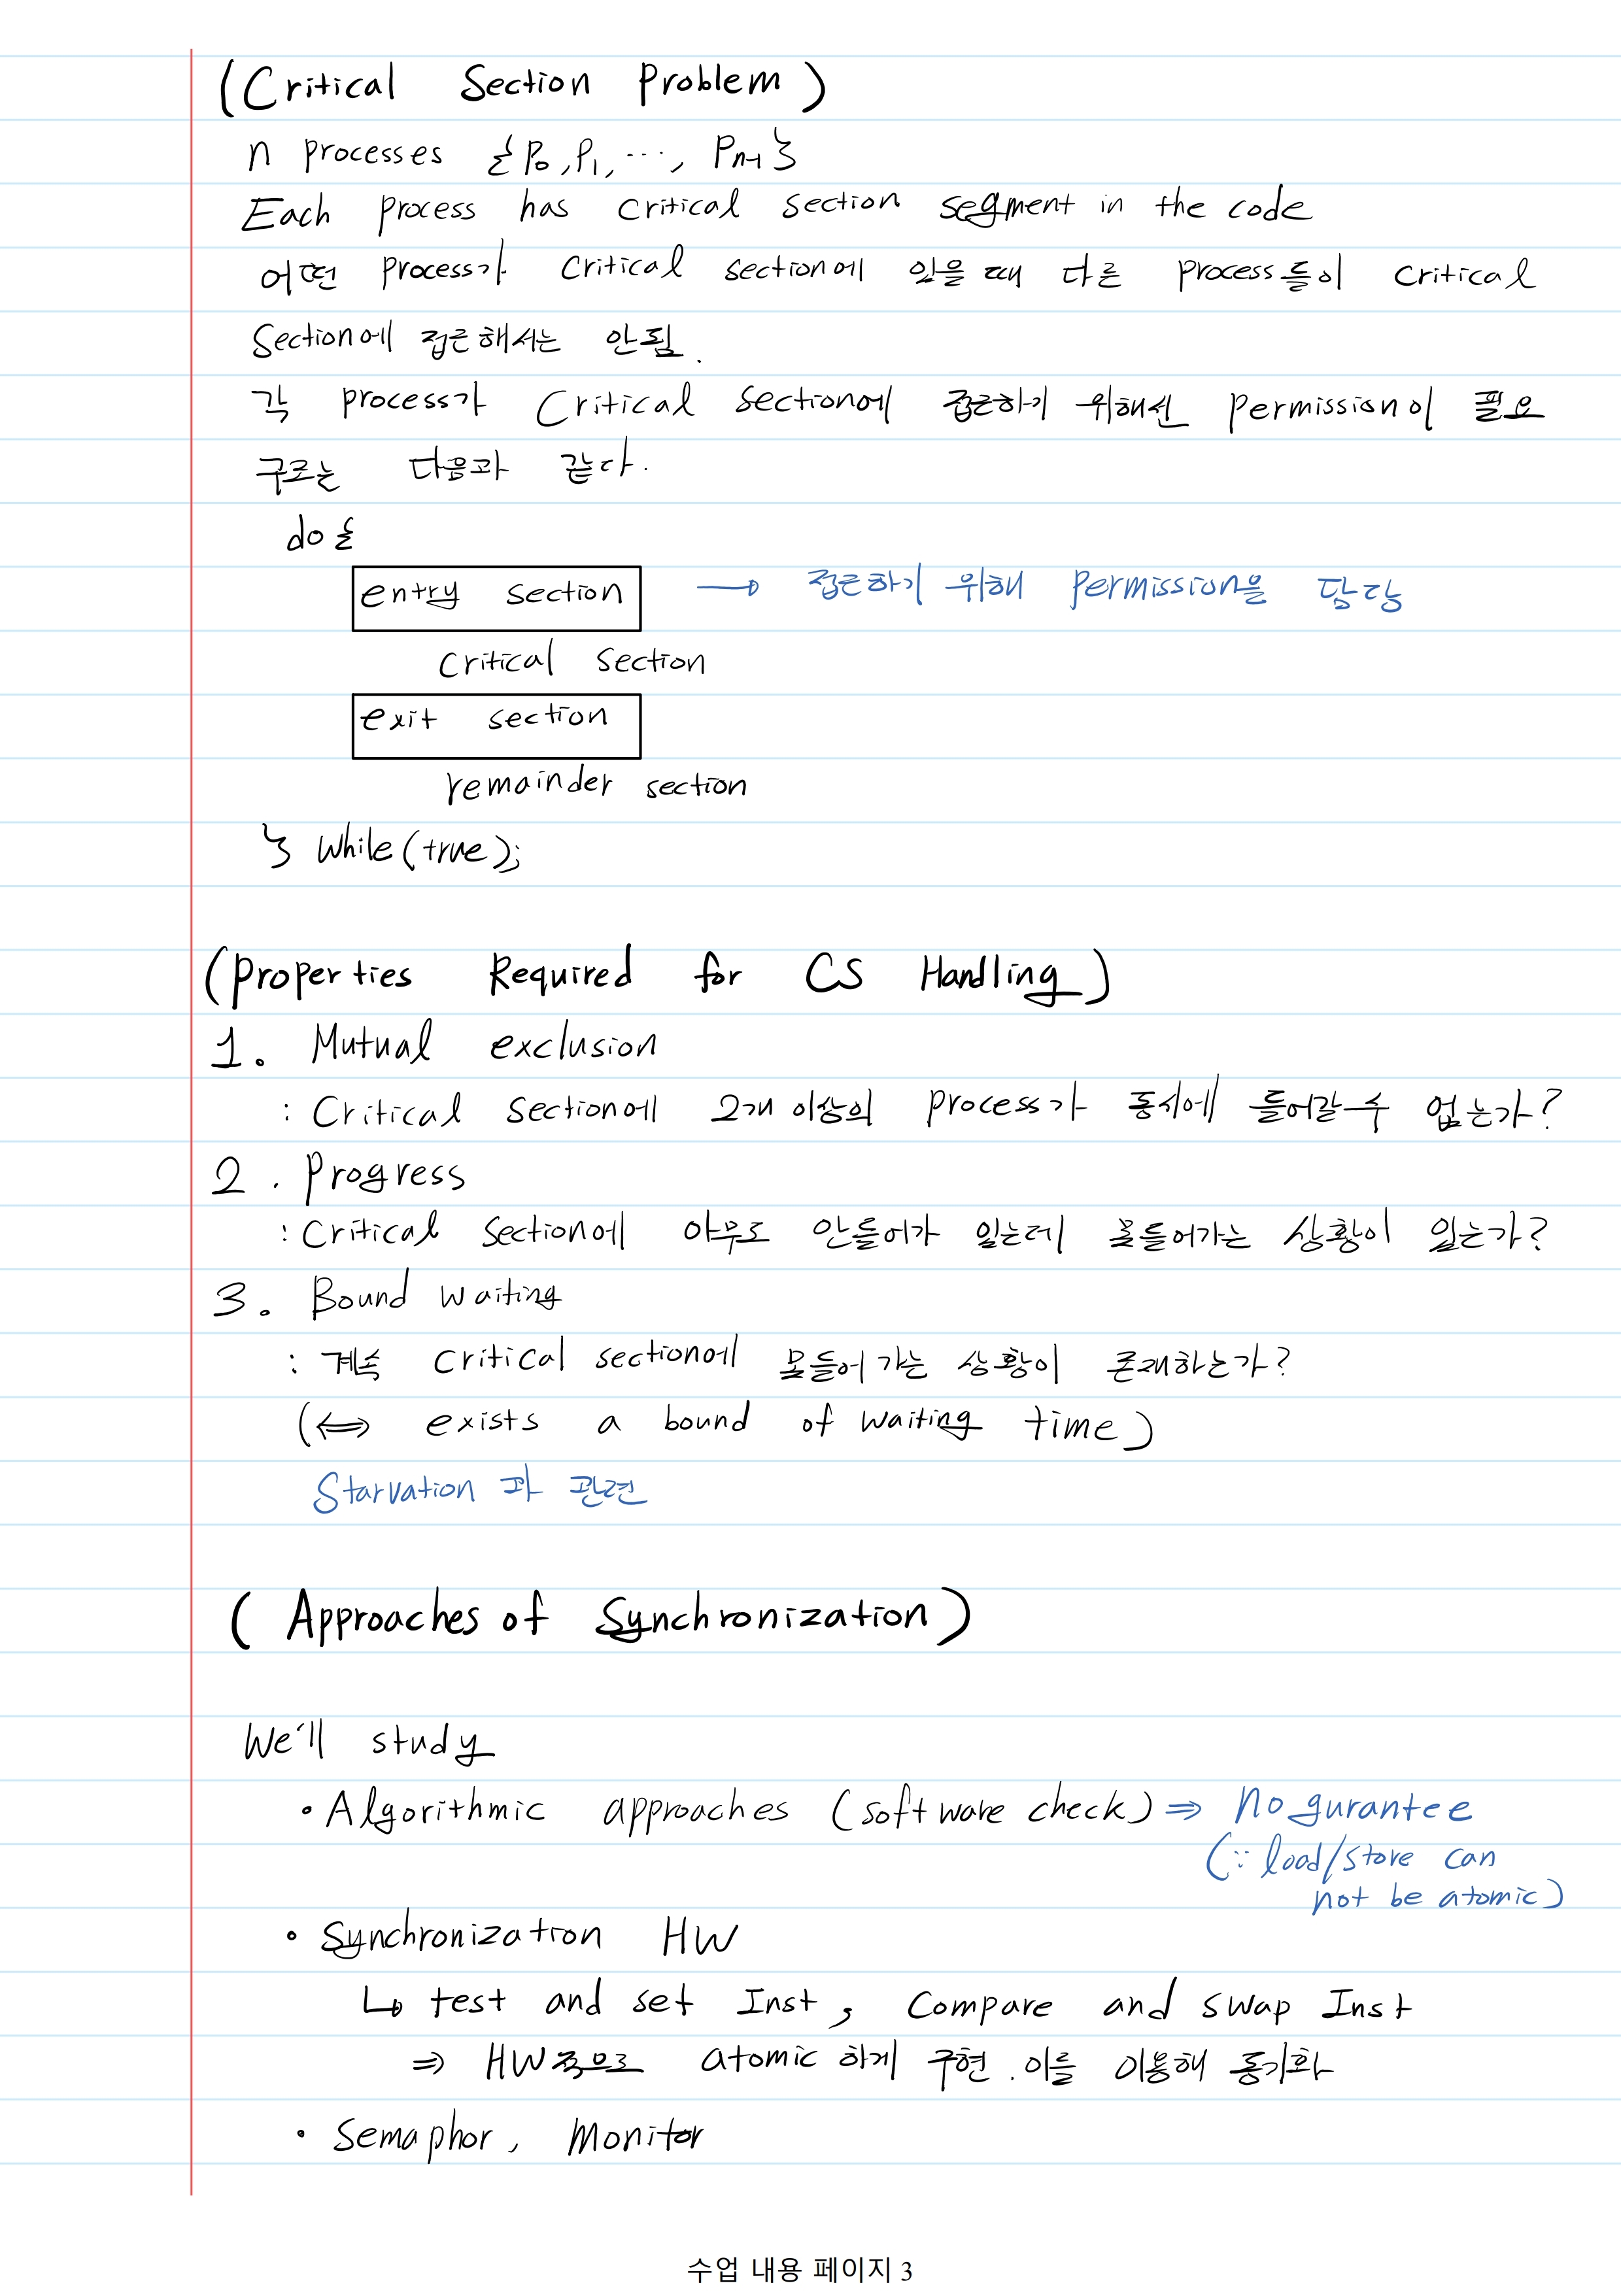 (Critical Section Problem)
n processes {P0, P1, ..., Pn-1}
Each process has critical section segment in the code
어떤 process가 critical section에 있을 때 다른 process들이 critical
section에 접근해서는 안됨.
각 process가 Critical section에 접근하기 위해선 permission이 필요
구조는 다음과 같다.
do {
entry section → 접근하기 위해 permission을 담당
critical section
exit section
remainder section
} while(true);
(Properties Required for CS Handling)
1. Mutual exclusion
: Critical section에 2개 이상의 process가 동시에 들어갈 수 없는가?
2. Progress
: Critical section에 아무도 안들어가 있는데 못들어가는 상황이 있는가?
3. Bound waiting
: 계속 critical section에 못들어 가는 상황이 존재하는가?
(⟺ exists a bound of waiting time)
Starvation 과 관련
(Approaches of Synchronization)
We'll study
• Algorithmic approaches (software check) ⇒ No gurantee
(∵ load/store can
not be atomic)
• Synchronization HW
↳ test and set Inst, Compare and swap Inst
⇒ HW적으로 atomic 하게 구현. 이를 이용해 동기화
• Semaphor, Monitor
수업 내용 페이지 3